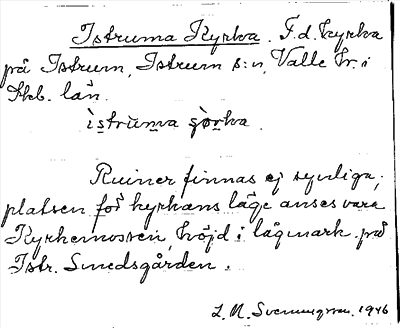 Istruma Kyrka. F.d. kyrka
på Istrum, Istrum s:n, Valle hr. i
Skb. län.
ìstrùma ʂòrka.
Ruiner finnas ej synliga;
platsen för kyrkans läge anses vara
Kyrkemossen, höjd i lågmark på
Istr. Smedsgården.
L. M. Svenungsson. 1946